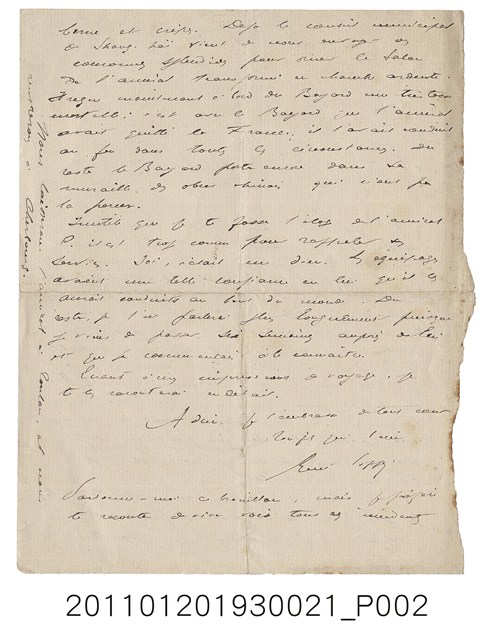 berne et crêpes. Déjà le conseil municipal
de Shang-haï vient de nous envoyer des
couronnes splendides pour orner le salon
de l'amiral transformé en chapelle ardente.
maintenant à bord du Bayard une tristesse
mortelle; c'est avec le Bayard que l'amiral
avait quitté la France, il l'avait conduit
au feu dans toutes les circonstances. Du
reste le Bayard porte encore dans sa
muraille des obus chinois qui n'ont pu
la percer.
Inutile que je te fasse l'éloge de l'amiral
C. il est trop connu pour rappeler ses
services. Ici, c'était un dieu. Les équipages
avaient une telle confiance en lui qu'il les
aurait conduits au bout du monde. Du
reste, je t'en parlerai plus longuement puisque
je viens de passer six semaines auprès de lui
et que je commençais à le connaître.
Quant à mes impressions de voyage, je
te les raconterai en détail.
Adieu je t'embrasse de tout cœur
Ton
Pardonne-moi ce brouillon, mais je préfère
te raconter de vive voix tous ces incidents
Nous laisserons l'amiral à Toulon, et nous
rentrerons à Cherbourg.
201101201930021_P002